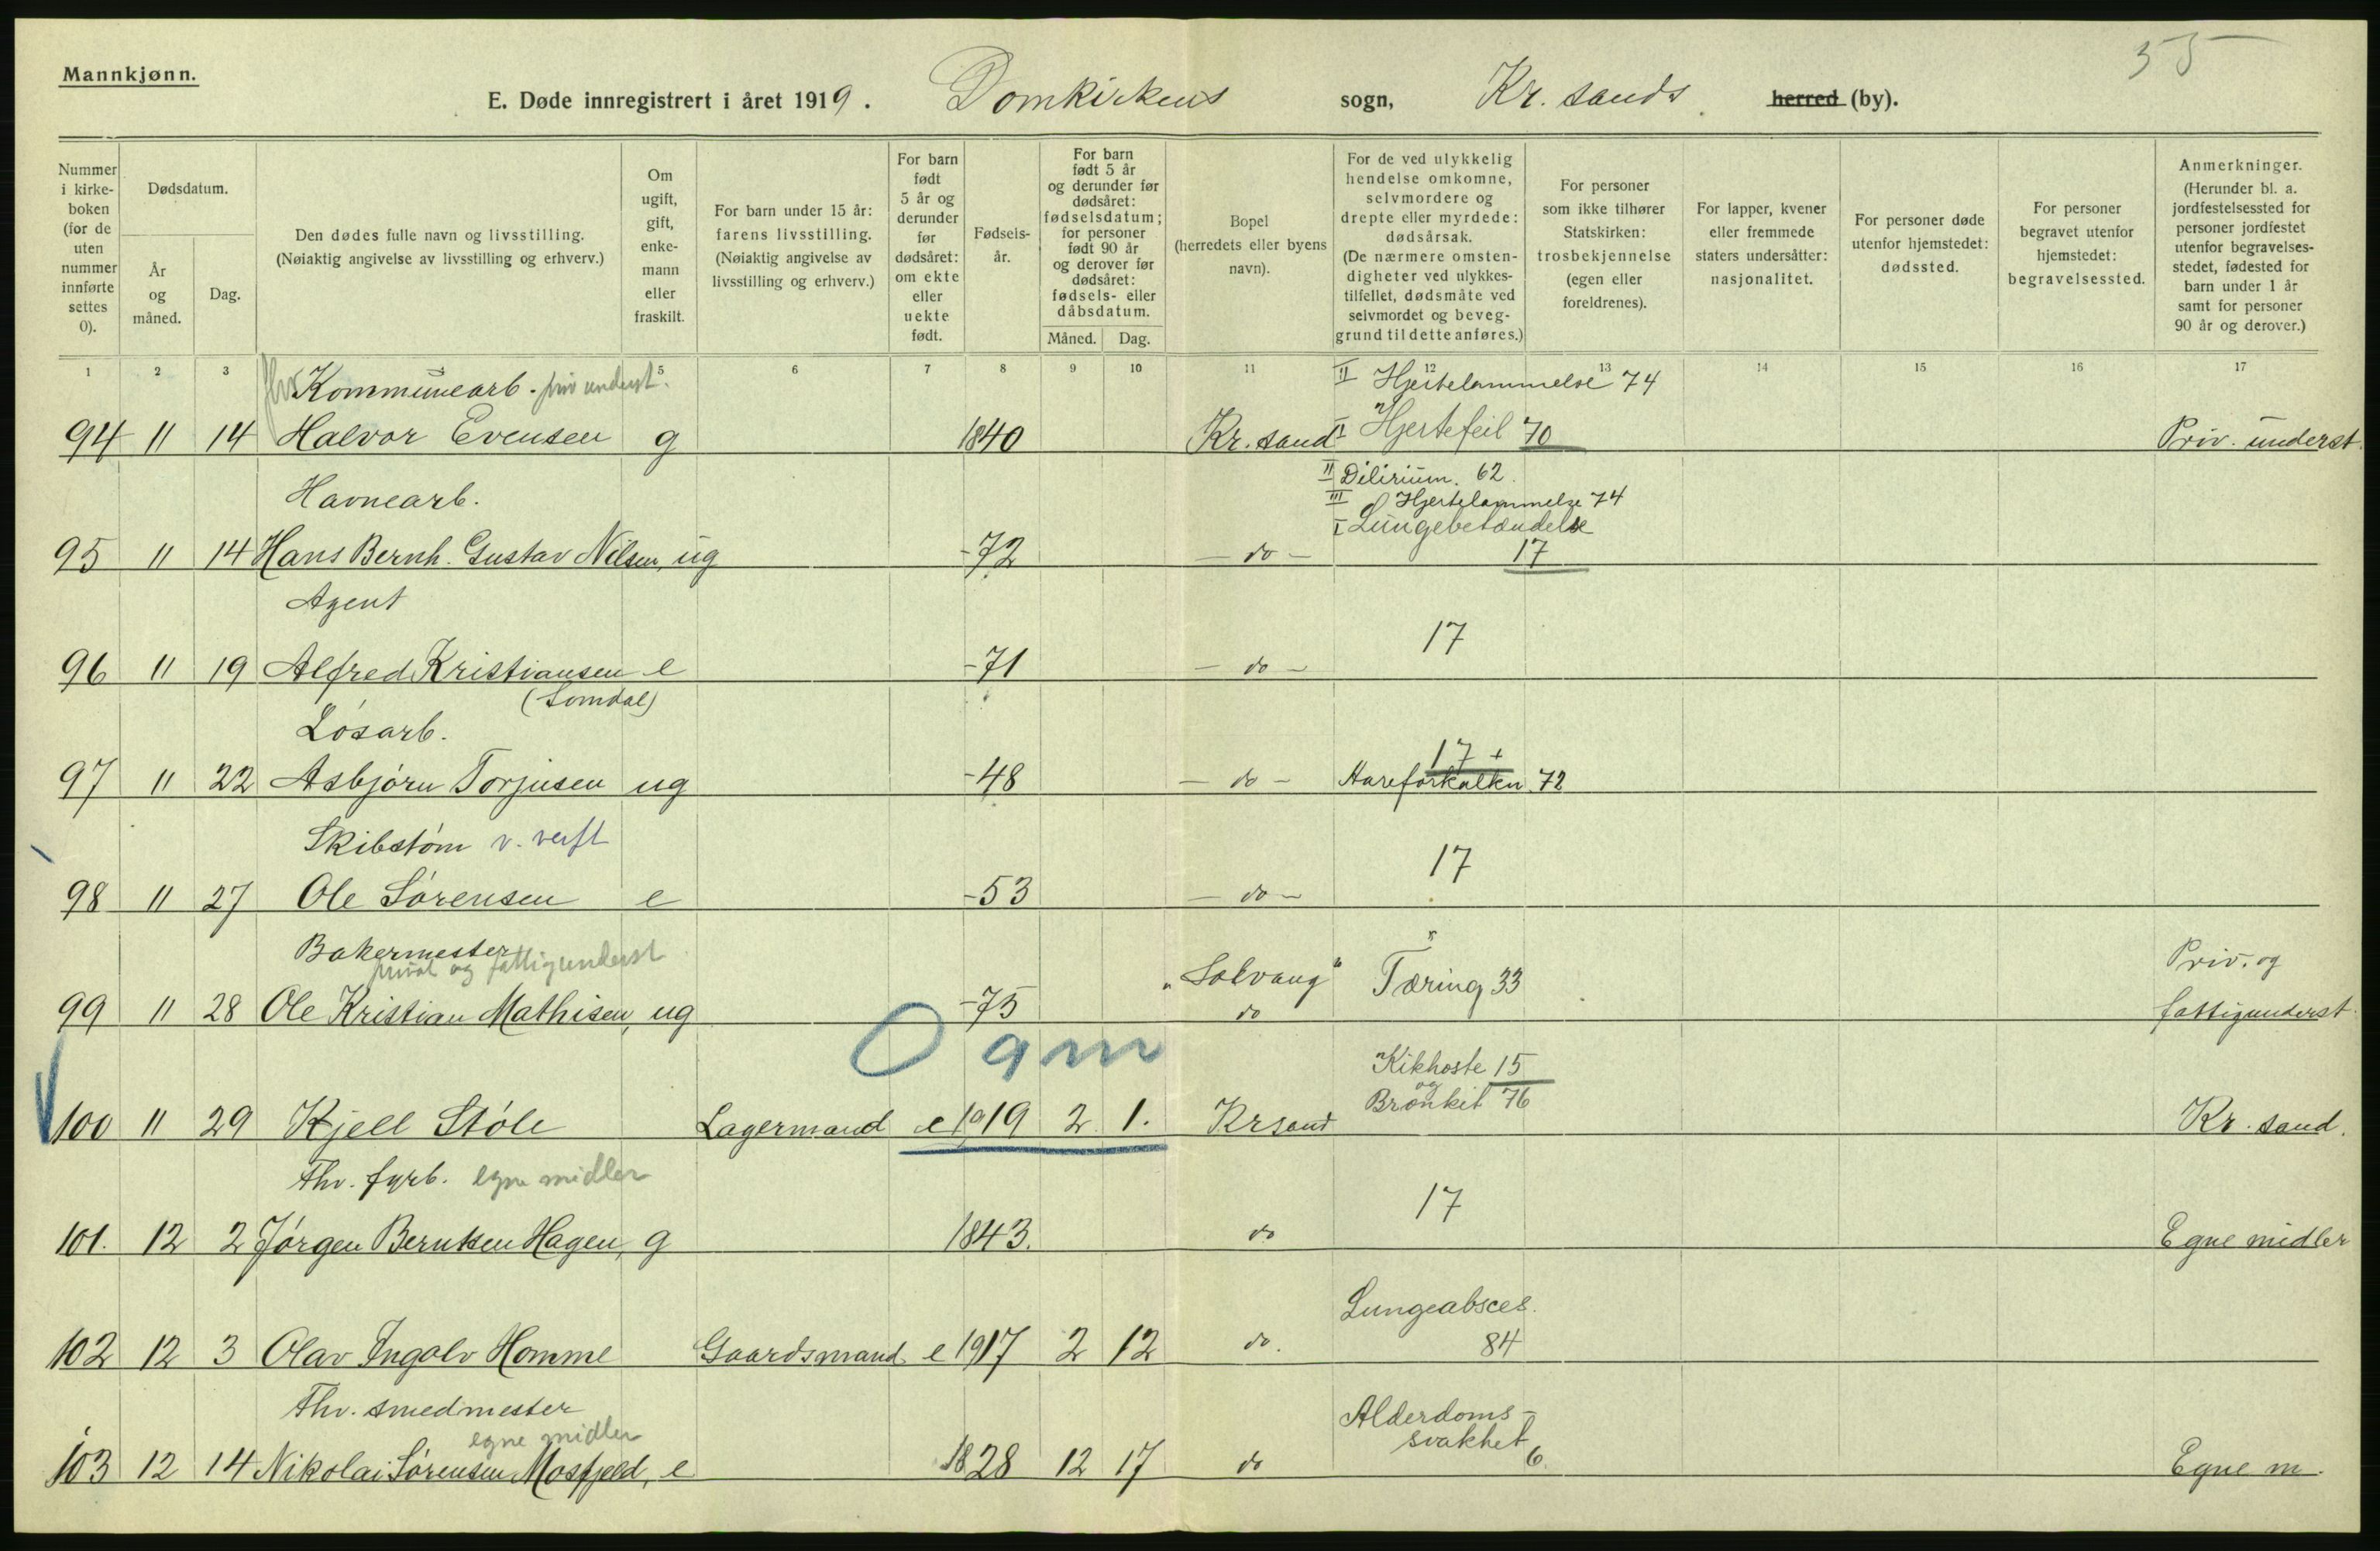 35
Mannkjønn.
E. Døde innregistrert i året 1919. Domkirkens sogn, Kr. sands herred (by).
Nummer i kirkeboken (for de uten nummer innførte settes 0).
Dødsdatum.
År og måned.
Dag.
Den dødes fulle navn og livsstilling.
(Nøiaktig angivelse av livsstilling og erhverv.)
Om ugift, gift, enkemann eller fraskilt.
For barn under 15 år: farens livsstilling. (Nøiaktig angivelse av livsstilling og erhverv.)
For barn født 5 år og derunder før dødsåret: om ekte eller uekte født.
Fødselsår.
For barn født 5 år og derunder før dødsåret: fødselsdatum; for personer født 90 år og derover før dødsåret: fødsels- eller dåbsdatum.
Måned. Dag.
Bopel (herredets eller byens navn).
For de ved ulykkelig hendelse omkomne, selvmordere og drepte eller myrdede: dødsårsak. (De nærmere omstendigheter ved ulykkestilfellet, dødsmåte ved selvmordet og beveggrund til dette anføres.)
For personer som ikke tilhører Statskirken: trosbekjennelse (egen eller foreldrenes).
For lapper, kvener eller fremmede staters undersåtter: nasjonalitet.
For personer døde utenfor hjemstedet: dødssted.
For personer begravet utenfor hjemstedet: begravelsessted.
Anmerkninger. (Herunder bl. a. jordfestelsessted for personer jordfestet utenfor begravelsesstedet, fødested for barn under 1 år samt for personer 90 år og derover.)
1 2 3 5 6 7 8 9 10 11 12 13 14 15 16 17
Kommunearb. priv underst. II Hjertelammelse 74
94 11 14 Halvor Evensen g 1840 Kr. sand I Hjertefeil 70 Priv. underst.
Havnearb. II Dilirium. 62.
III Hjertelammelse 74
I Lungebetændelse
95 11 14 Hans Bernh. Gustav Nilsen, ug -72 - do - 17
Agent
96 11 19 Alfred Kristiansen e -71 - do - 17
(Lomdal)
Løsarb.
97 11 22 Asbjørn Torjusen ug -48 - do - 17 + Aareforkalkn 72
Skibstøm v. verft
98 11 27 Ole Sørensen e -53 - do - 17
Bakermester
privat og fattigunderst
99 11 28 Ole Kristian Mathisen, ug -75 "Solvang" do Tæring 33 Priv. og fattigunderst.
0 gm
Kikhoste 15
og
Bronkit 76
100 11 29 Kjell Støle Lagermand e 1919 2 1. Krsand Kr. sand.
Fhv. fyrb. egne midler
101. 12 2 Jørgen Berntsen Hagen, g 1843. do 17 Egne midler
Lungeabsces.
102 12 3 Olav Ingolv Homme Gaardsmand e 1917 2 12 do. 84
Fhv. smedmester
egne midler
Alderdoms-
svakhet 6.
103 12 14 Nikolai Sørensen Mosfjeld, e 1828 12 17 do Egne m.